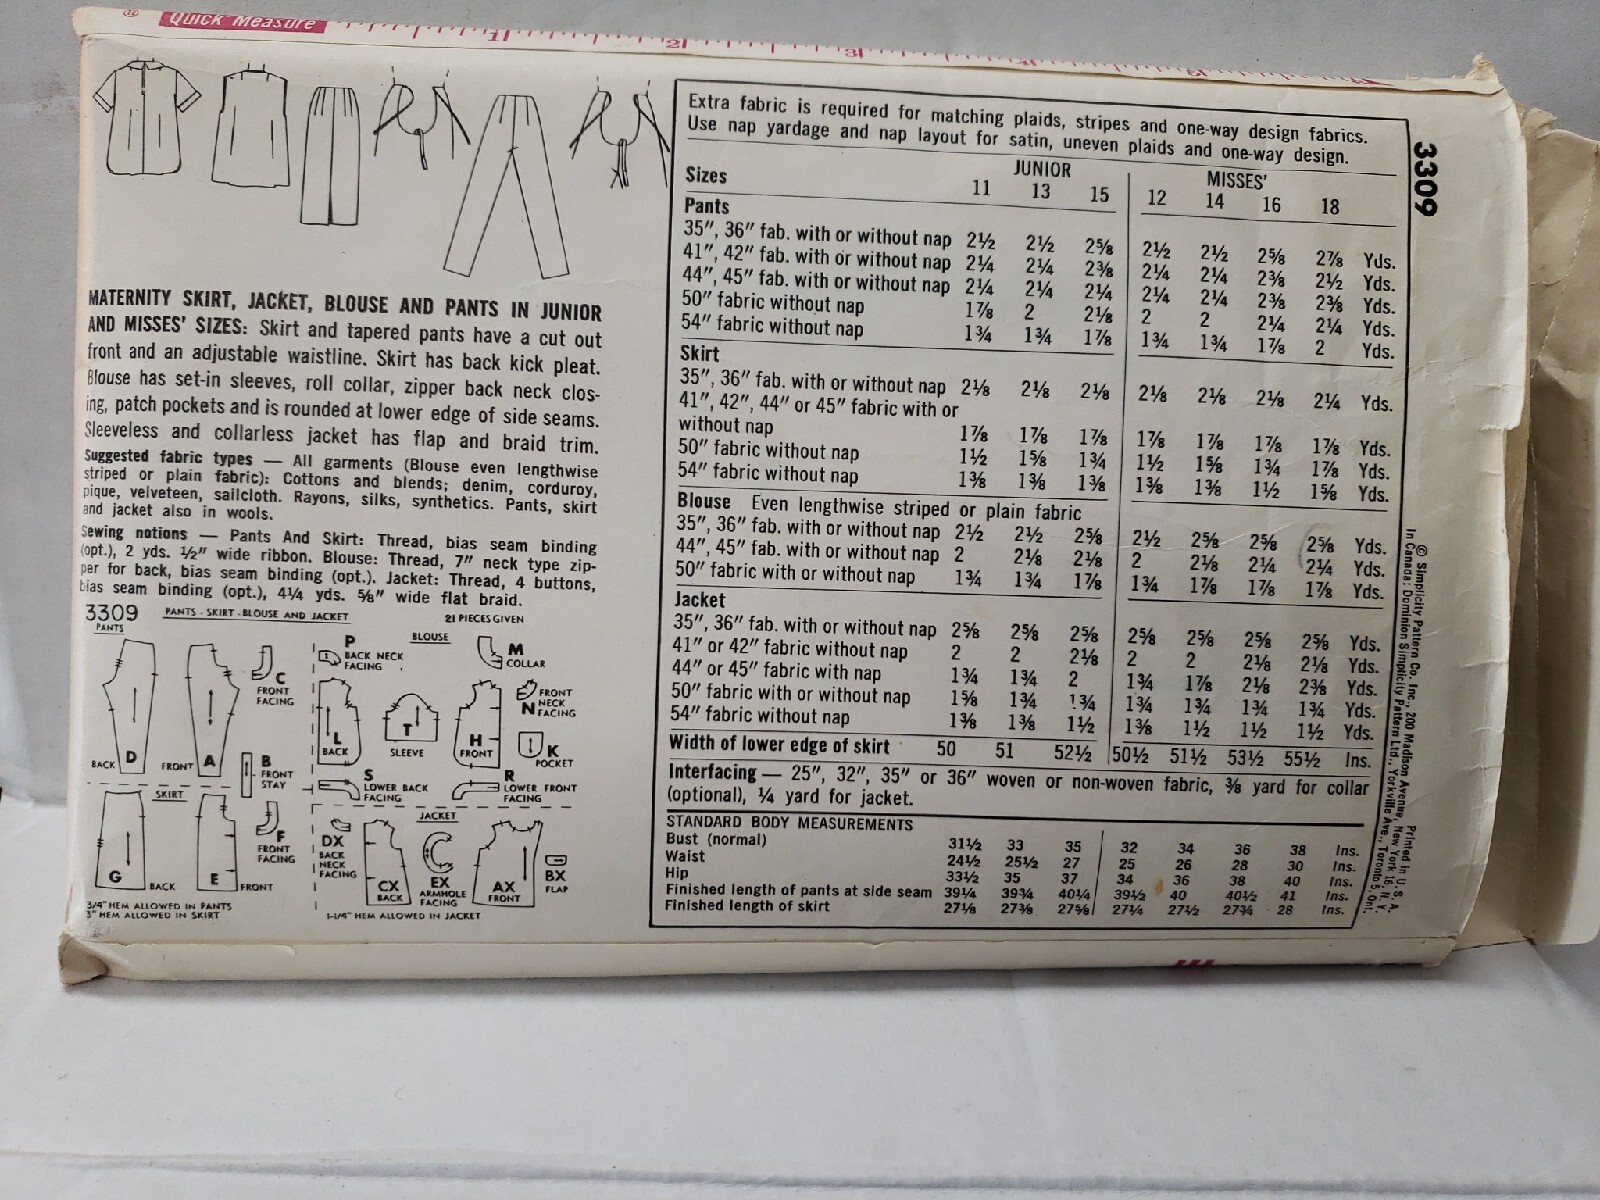 Quick Measure
1
2
3
MATERNITY SKIRT, JACKET, BLOUSE AND PANTS IN JUNIOR
AND MISSES' SIZES: Skirt and tapered pants have a cut out
front and an adjustable waistline. Skirt has back kick pleat.
Blouse has set-in sleeves, roll collar, zipper back neck clos-
ing, patch pockets and is rounded at lower edge of side seams.
Sleeveless and collarless jacket has flap and braid trim.
Suggested fabric types — All garments (Blouse even lengthwise
striped or plain fabric): Cottons and blends; denim, corduroy,
pique, velveteen, sailcloth. Rayons, silks, synthetics. Pants, skirt
and jacket also in wools.
Sewing notions — Pants And Skirt: Thread, bias seam binding
(opt.), 2 yds. ½" wide ribbon. Blouse: Thread, 7" neck type zip-
per for back, bias seam binding (opt.). Jacket: Thread, 4 buttons,
bias seam binding (opt.), 4¼ yds. ⅝" wide flat braid.
3309 PANTS - SKIRT - BLOUSE AND JACKET 21 PIECES GIVEN
PANTS
BACK D
FRONT A
C
FRONT
FACING
B
FRONT
STAY
SKIRT
G BACK
E FRONT
F
FRONT
FACING
3/4" HEM ALLOWED IN PANTS
3" HEM ALLOWED IN SKIRT
BLOUSE
P
BACK NECK
FACING
M
COLLAR
L
BACK
T
SLEEVE
H
FRONT
N FRONT
NECK
FACING
K
POCKET
S
LOWER BACK
FACING
R
LOWER FRONT
FACING
JACKET
DX
BACK
NECK
FACING
CX
BACK
EX
ARMHOLE
FACING
AX
FRONT
BX
FLAP
1-1/4" HEM ALLOWED IN JACKET
Extra fabric is required for matching plaids, stripes and one-way design fabrics.
Use nap yardage and nap layout for satin, uneven plaids and one-way design.
JUNIOR MISSES'
Sizes 11 13 15 12 14 16 18
Pants
35", 36" fab. with or without nap 2½ 2½ 2⅝ 2½ 2½ 2⅝ 2⅞ Yds.
41", 42" fab. with or without nap 2¼ 2¼ 2⅜ 2¼ 2¼ 2⅜ 2½ Yds.
44", 45" fab. with or without nap 2¼ 2¼ 2¼ 2¼ 2¼ 2⅜ 2⅜ Yds.
50" fabric without nap 1⅞ 2 2⅛ 2 2 2¼ 2¼ Yds.
54" fabric without nap 1¾ 1¾ 1⅞ 1¾ 1¾ 1⅞ 2 Yds.
Skirt
35", 36" fab. with or without nap 2⅛ 2⅛ 2⅛ 2⅛ 2⅛ 2⅛ 2¼ Yds.
41", 42", 44" or 45" fabric with or
without nap 1⅞ 1⅞ 1⅞ 1⅞ 1⅞ 1⅞ 1⅞ Yds.
50" fabric without nap 1½ 1⅝ 1¾ 1½ 1⅝ 1¾ 1⅞ Yds.
54" fabric without nap 1⅜ 1⅜ 1⅜ 1⅜ 1⅜ 1½ 1⅝ Yds.
Blouse Even lengthwise striped or plain fabric
35", 36" fab. with or without nap 2½ 2½ 2⅝ 2½ 2⅝ 2⅝ 2⅝ Yds.
44", 45" fab. with or without nap 2 2⅛ 2⅛ 2 2⅛ 2¼ 2¼ Yds.
50" fabric with or without nap 1¾ 1¾ 1⅞ 1¾ 1⅞ 1⅞ 1⅞ Yds.
Jacket
35", 36" fab. with or without nap 2⅝ 2⅝ 2⅝ 2⅝ 2⅝ 2⅝ 2⅝ Yds.
41" or 42" fabric without nap 2 2 2⅛ 2 2 2⅛ 2⅛ Yds.
44" or 45" fabric with nap 1¾ 1¾ 2 1¾ 1⅞ 2⅛ 2⅜ Yds.
50" fabric with or without nap 1⅝ 1¾ 1¾ 1¾ 1¾ 1¾ 1¾ Yds.
54" fabric without nap 1⅜ 1⅜ 1½ 1⅜ 1½ 1½ 1½ Yds.
Width of lower edge of skirt 50 51 52½ 50½ 51½ 53½ 55½ Ins.
Interfacing — 25", 32", 35" or 36" woven or non-woven fabric, ⅜ yard for collar
(optional), ¼ yard for jacket.
STANDARD BODY MEASUREMENTS
Bust (normal) 31½ 33 35 32 34 36 38 Ins.
Waist 24½ 25½ 27 25 26 28 30 Ins.
Hip 33½ 35 37 34 36 38 40 Ins.
Finished length of pants at side seam 39¼ 39¾ 40¼ 39½ 40 40½ 41 Ins.
Finished length of skirt 27⅛ 27⅜ 27⅝ 27¼ 27½ 27¾ 28 Ins.
3309
© Simplicity Pattern Co. Inc., 200 Madison Avenue, New York 16, N.Y.
In Canada: Dominion Simplicity Pattern Ltd., Yorkville Ave., Toronto 5, Ont.
Printed in U.S.A.